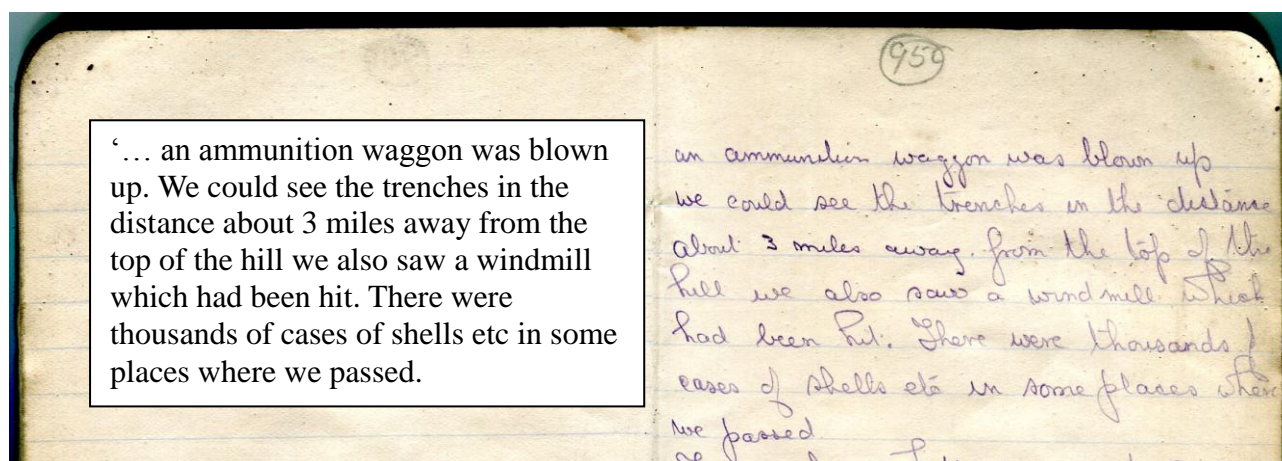 959
‘… an ammunition waggon was blown
up. We could see the trenches in the
distance about 3 miles away from the
top of the hill we also saw a windmill
which had been hit. There were
thousands of cases of shells etc in some
places where we passed.
an ammunition waggon was blown up
we could see the trenches in the distance
about 3 miles away. from the top of the
hill we also saw a windmill which
had been hit. There were thousands of
cases of shells etc in some places where
we passed